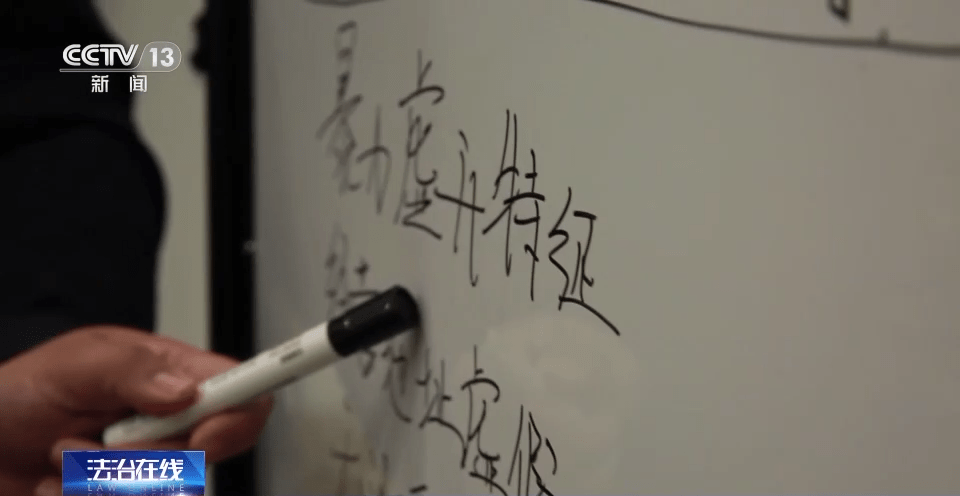 CCTV 13
新闻
暴力虚开特征
地址虚假
法治在线
LAW ONLINE